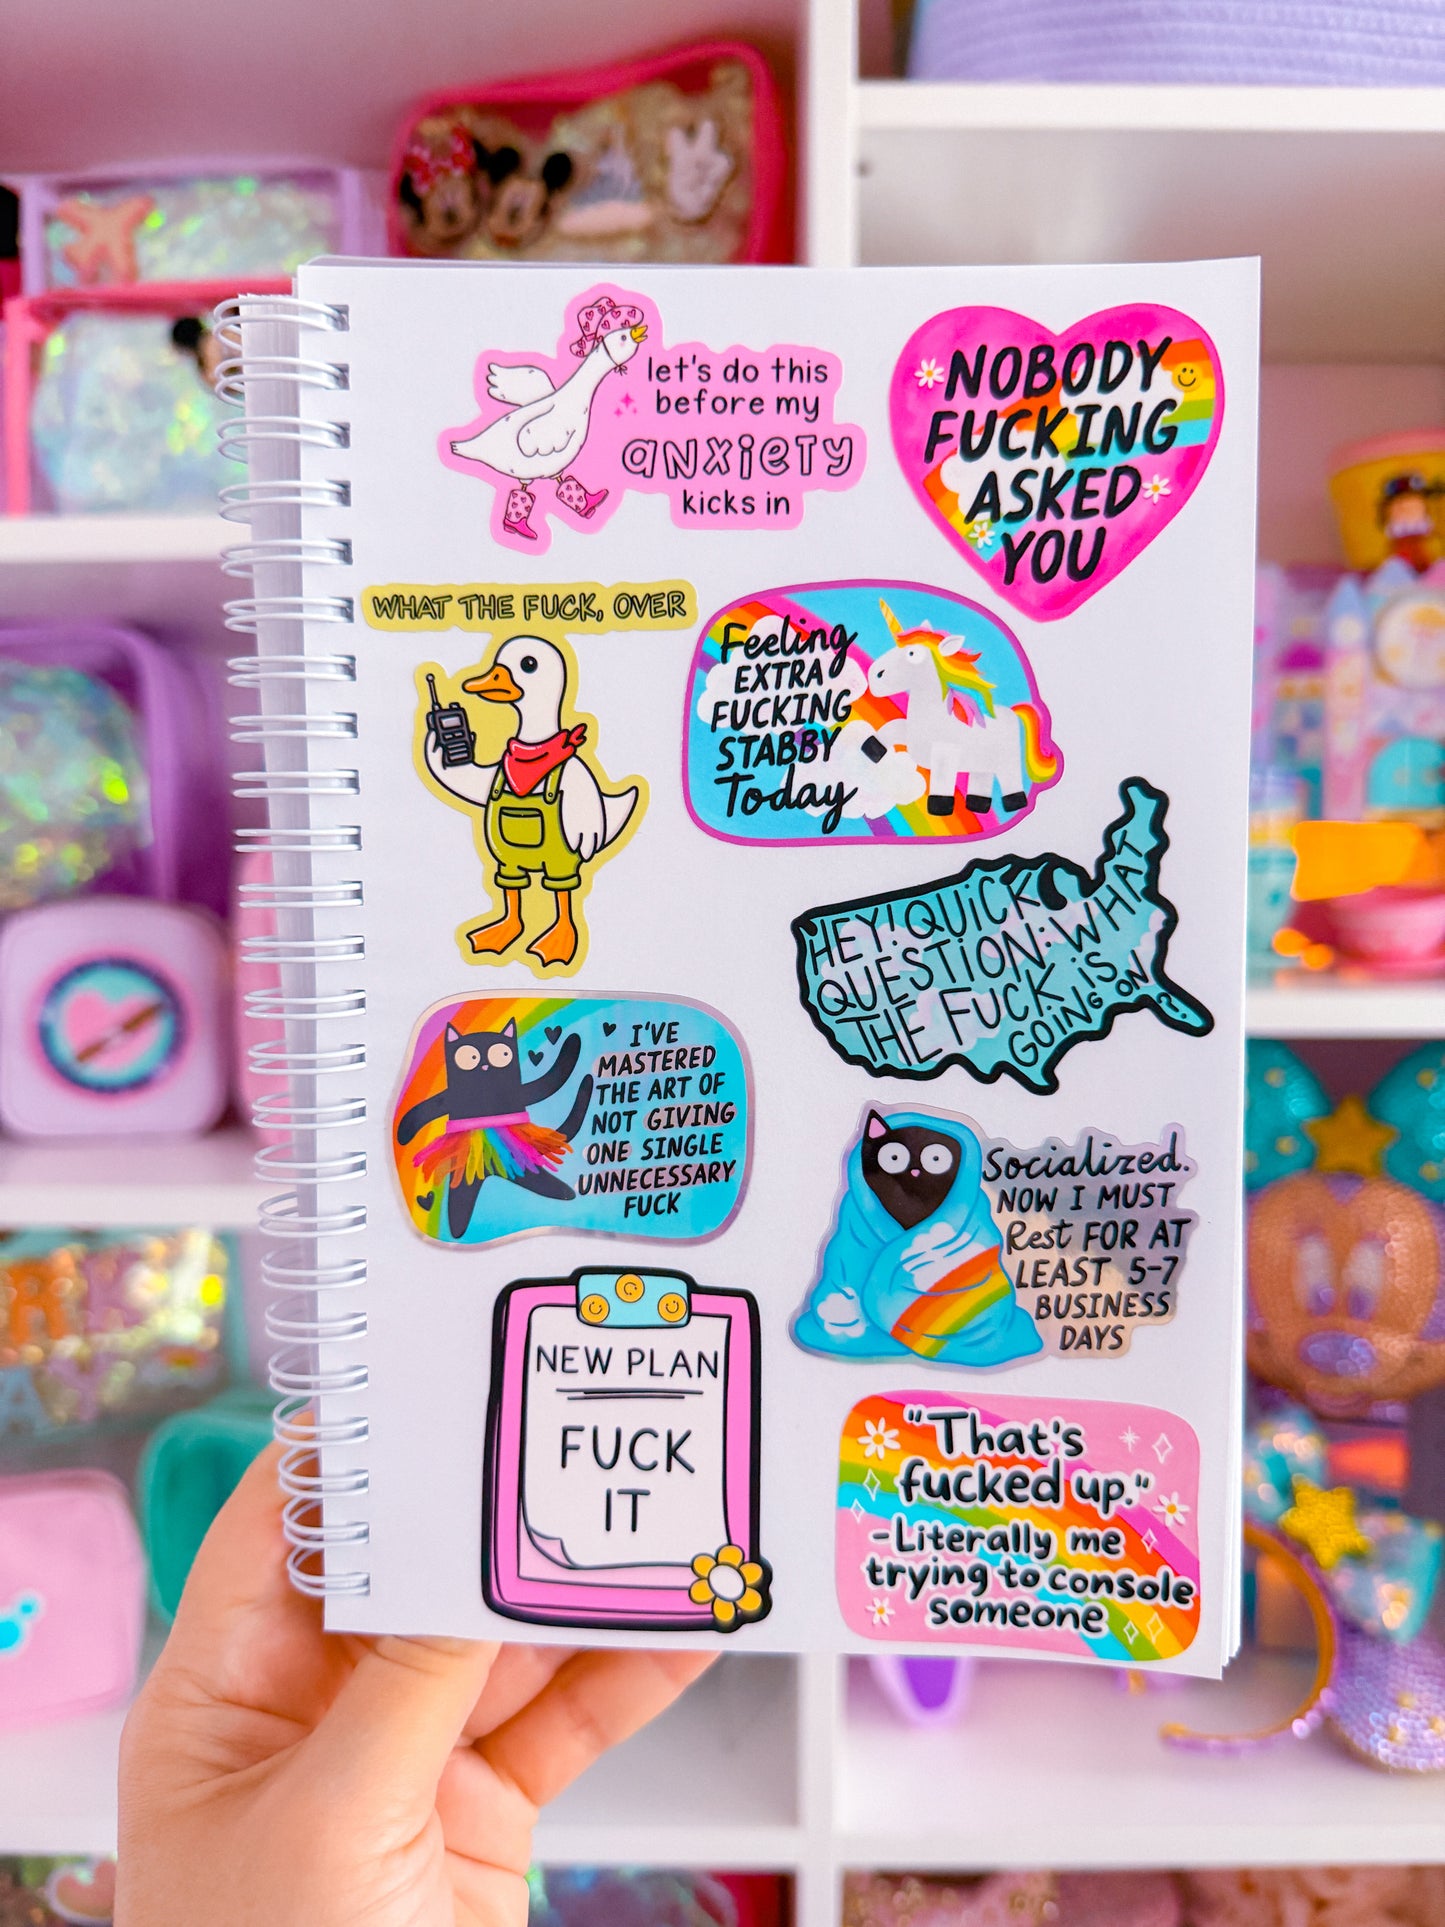 let's do this
before my
anxiety
kicks in
NOBODY
FUCKING
ASKED
YOU
WHAT THE FUCK, OVER
Feeling
EXTRA
FUCKING
STABBY
Today
HEY! QUICK
QUESTION: WHAT
THE FUCK IS
GOING ON?
I'VE
MASTERED
THE ART OF
NOT GIVING
ONE SINGLE
UNNECESSARY
FUCK
Socialized.
NOW I MUST
Rest FOR AT
LEAST 5-7
BUSINESS
DAYS
NEW PLAN
FUCK
IT
"That's
fucked up."
-Literally me
trying to console
someone